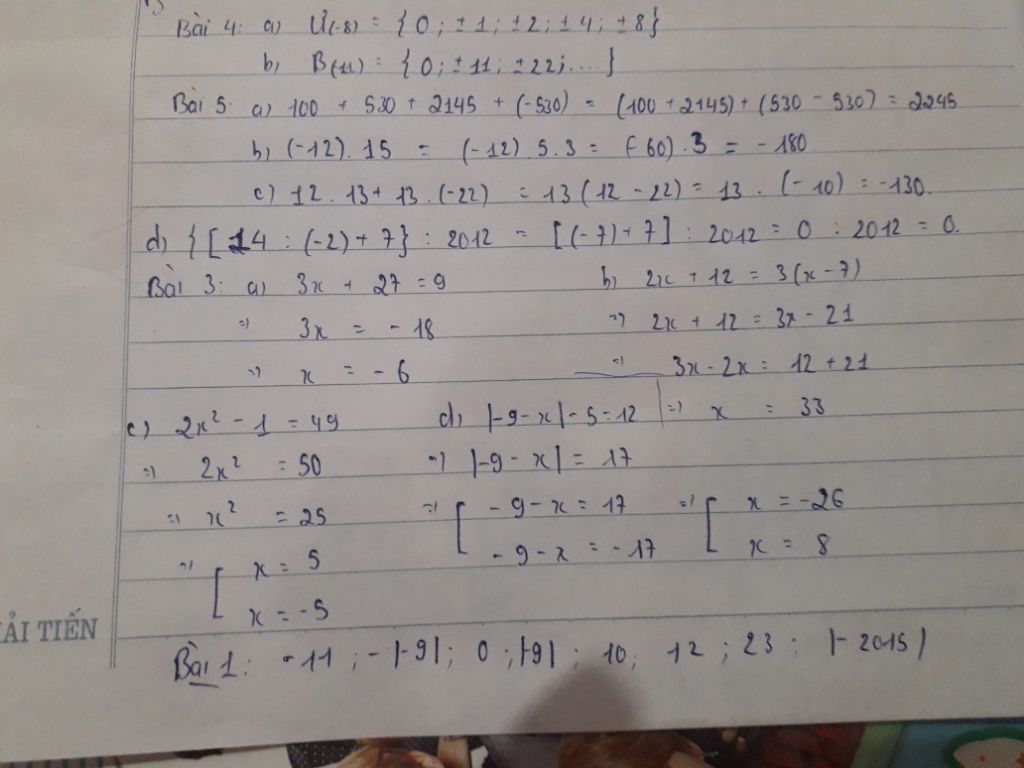 Bài 4: a) Ư(-8) = {0; ±1; ±2; ±4; ±8}
b, B(11) = {0; ±11; ±22; ... }
Bài 5: a) 100 + 530 + 2145 + (-530) = (100 + 2145) + (530 - 530) = 2245
b, (-12). 15 = (-12). 5. 3 = (-60). 3 = -180
c) 12. 13 + 13. (-22) = 13 (12 - 22) = 13. (-10) = -130.
d) {[14 : (-2) + 7} : 2012 = [(-7) + 7] : 2012 = 0 : 2012 = 0.
Bài 3: a) 3x + 27 = 9 b, 2x + 12 = 3(x - 7)
=) 3x = - 18 =) 2x + 12 = 3x - 21
=) x = - 6 =) 3x - 2x = 12 + 21
c) 2x² - 1 = 49 d) |-9 - x| - 5 = 12 =) x = 33
=) 2x² = 50 =) |-9 - x| = 17
=) x² = 25 =) [ - 9 - x = 17 =) [ x = -26
- 9 - x = - 17 x = 8
=) [ x = 5
x = -5
ẢI TIẾN
Bài 1: -11 ; - |-9| ; 0 ; |-9| ; 10; 12 ; 23 ; |- 2015|